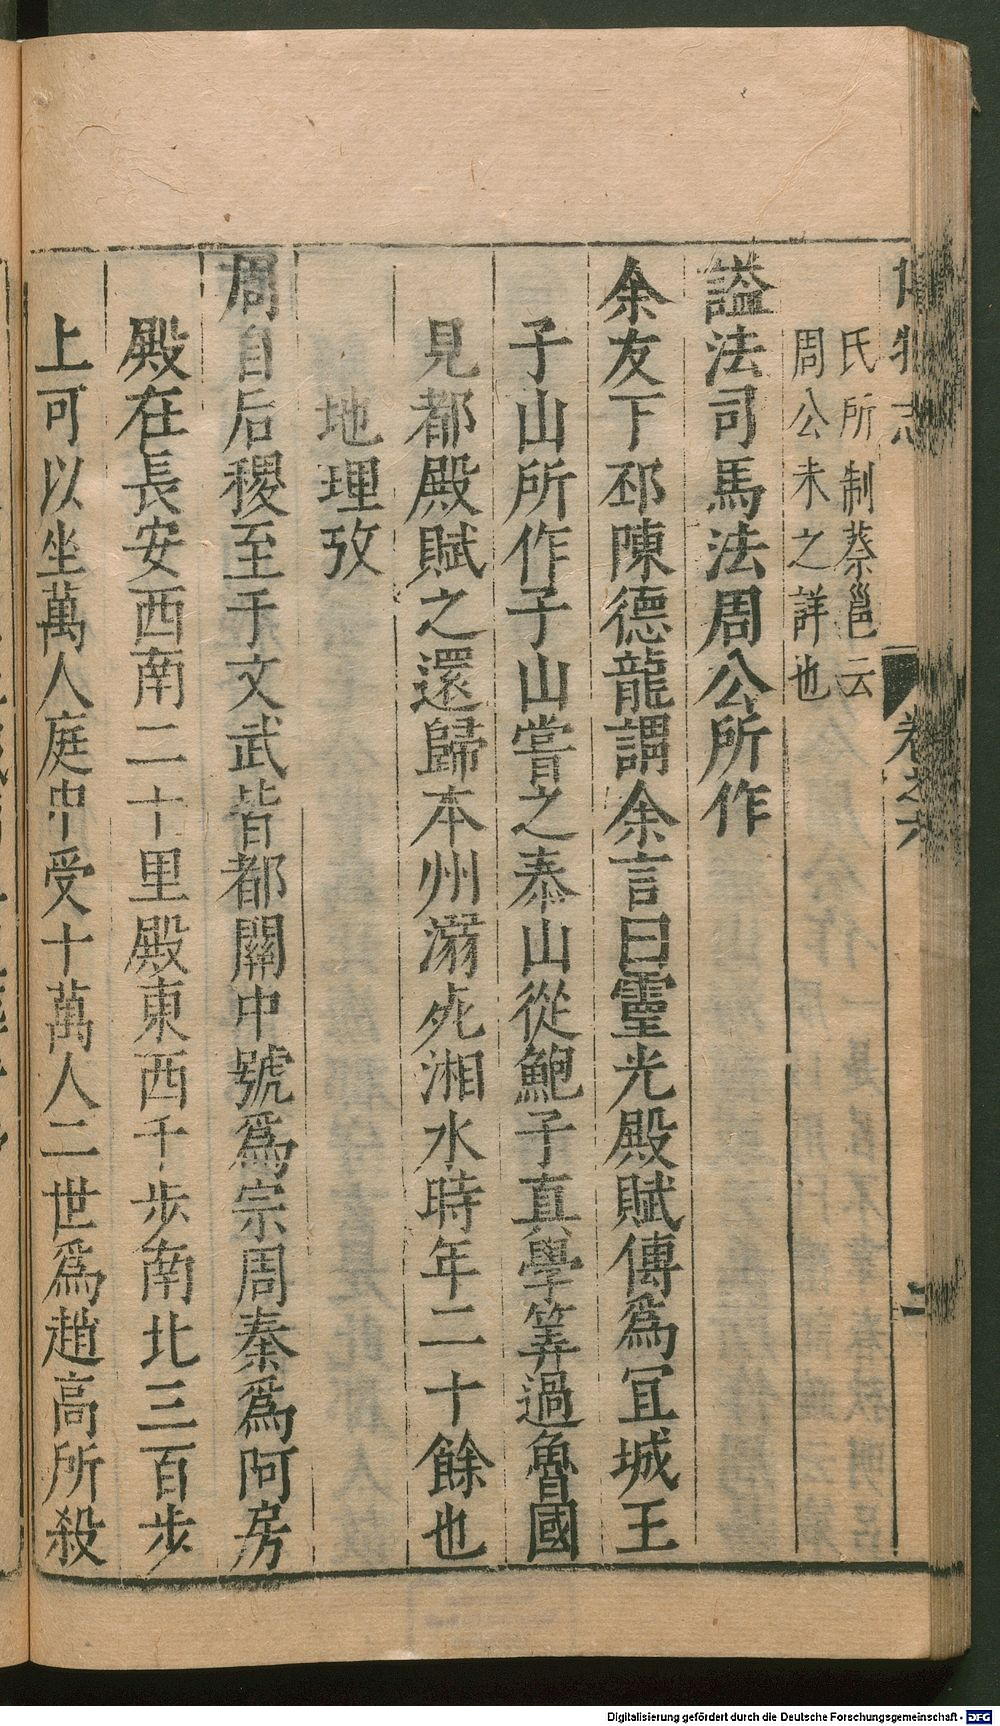 博物志 卷之六 二
氏所制蔡邕云
周公未之詳也
謚法司馬法周公所作
余友下邳陳德龍謂余言曰靈光殿賦傳爲宜城王
子山所作子山嘗之泰山從鮑子真學筭過魯國
見都殿賦之還歸本州溺死湘水時年二十餘也
地理攷
周自后稷至于文武皆都關中號爲宗周秦爲阿房
殿在長安西南二十里殿東西千步南北三百步
上可以坐萬人庭中受十萬人二世爲趙高所殺
Digitalisierung gefördert durch die Deutsche Forschungsgemeinschaft - DFG